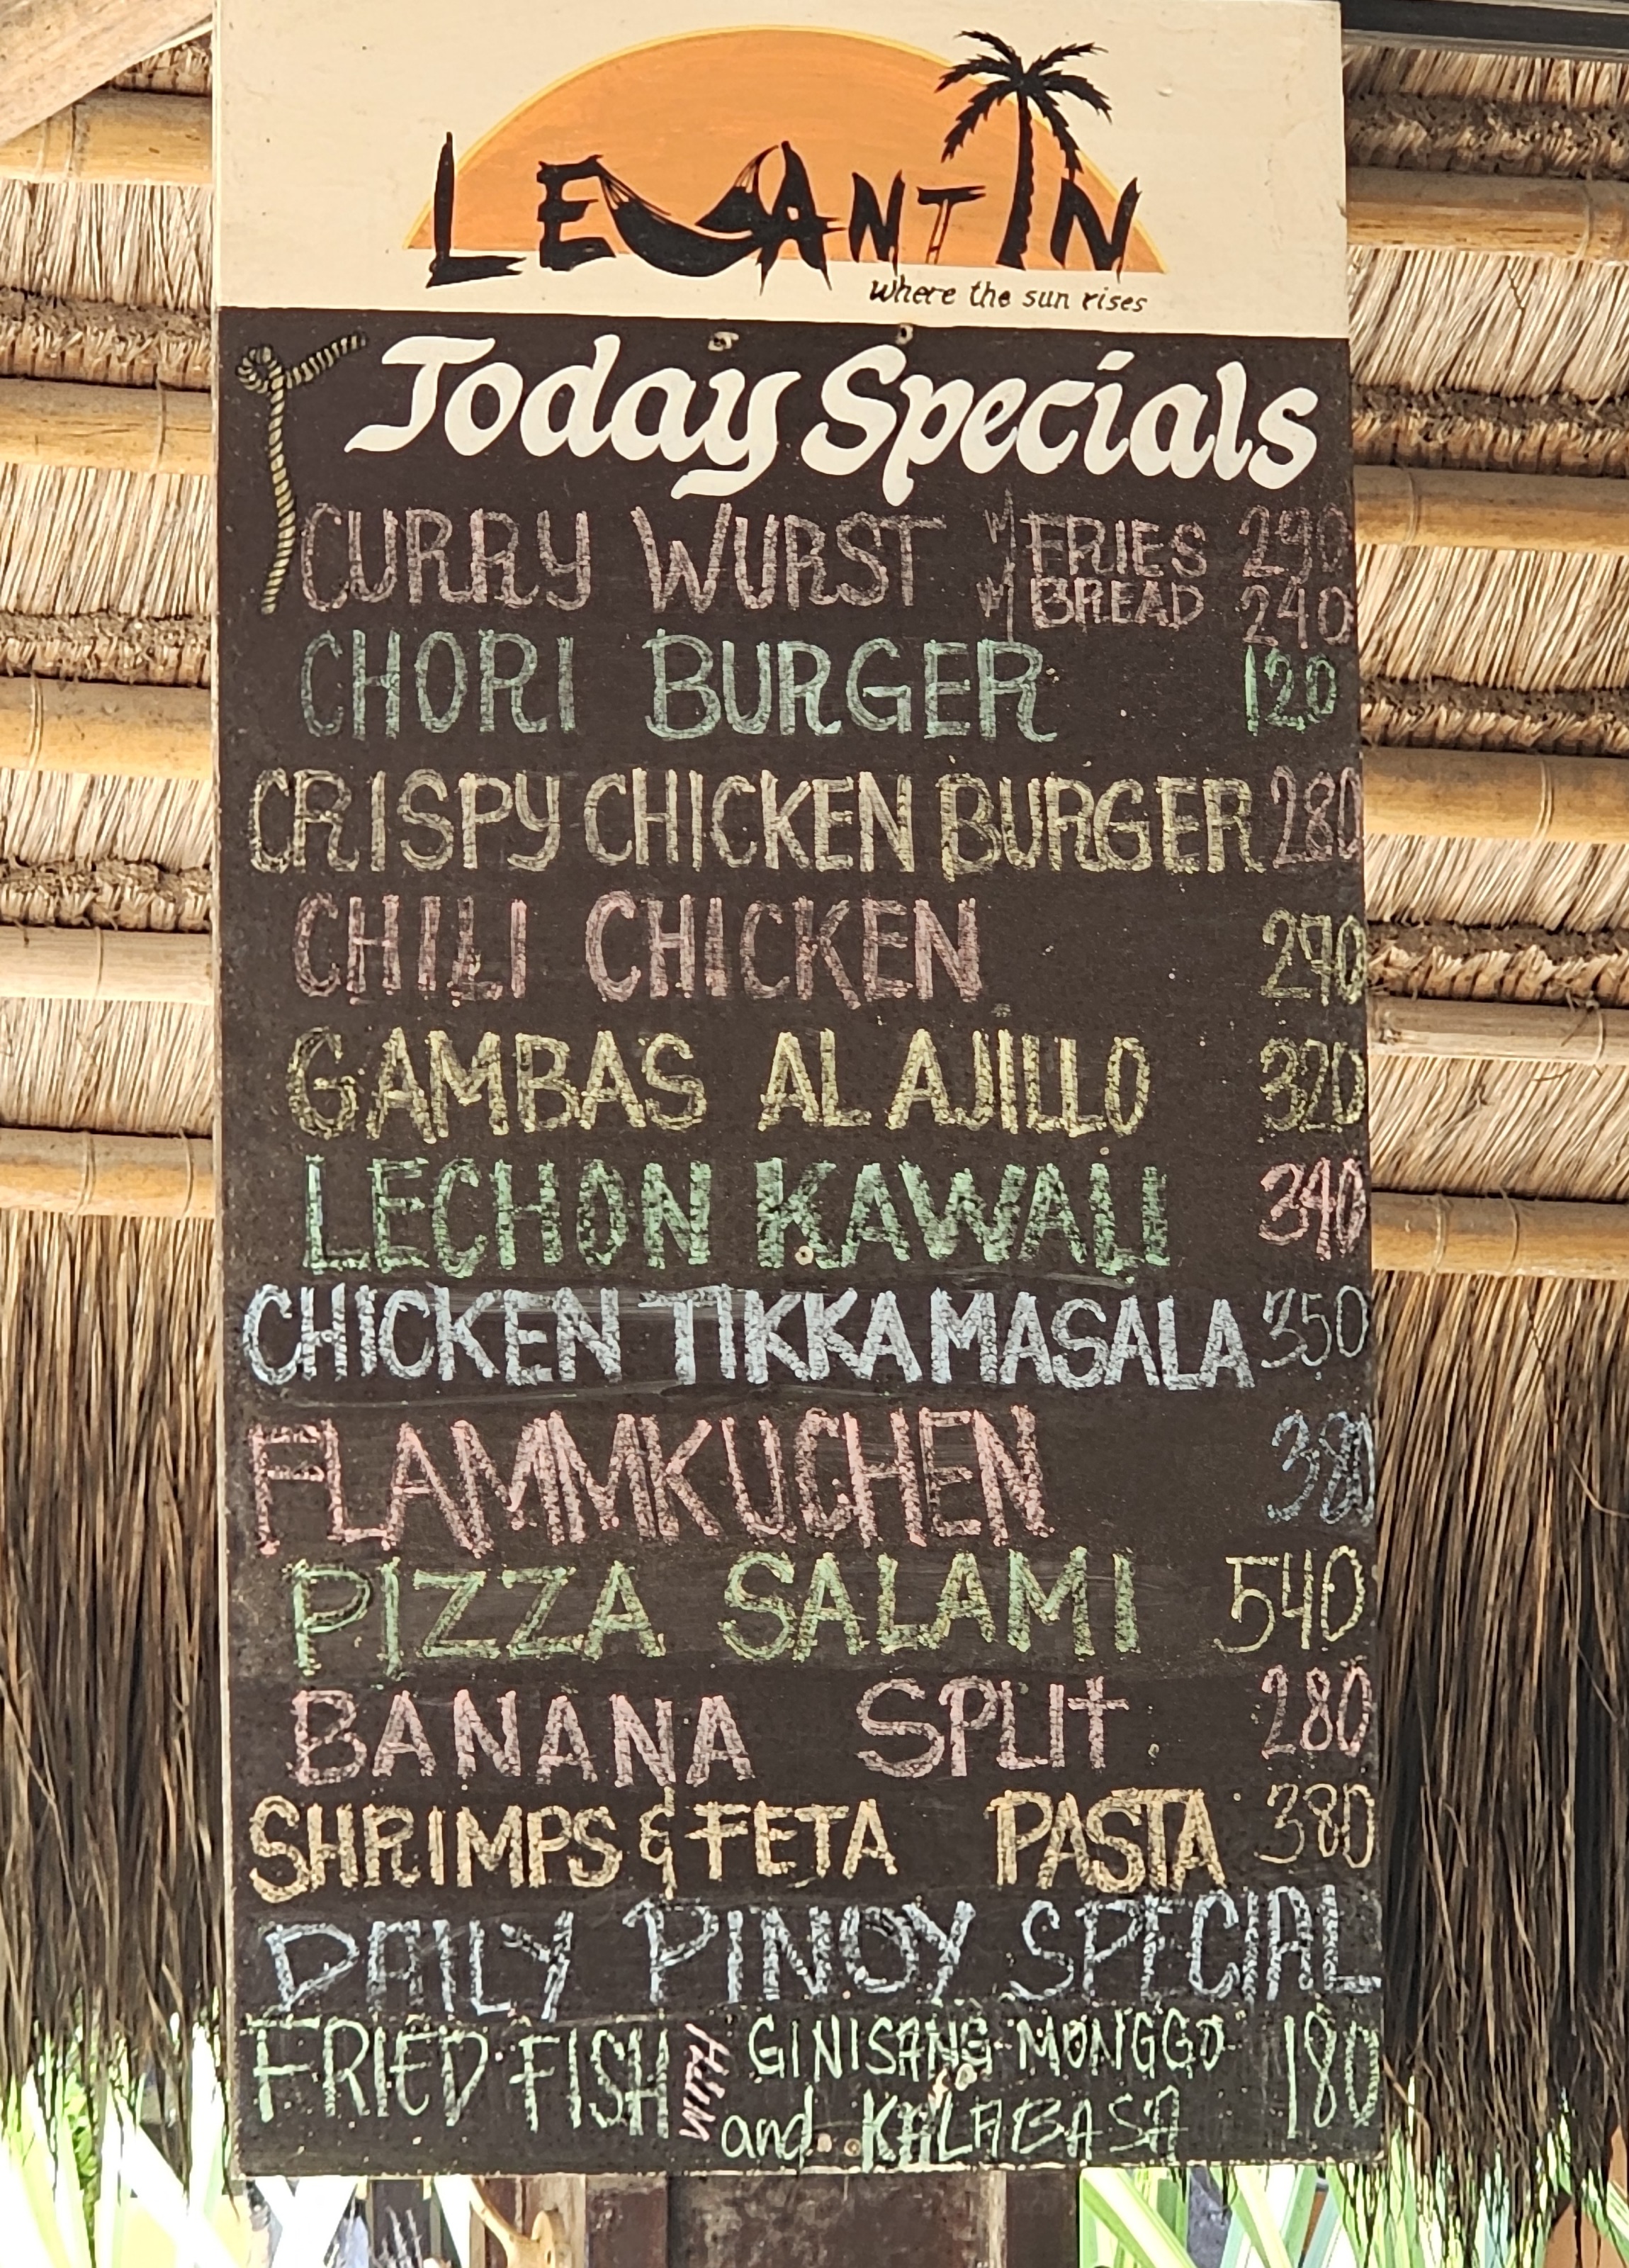 LEVANTIN
Where the sun rises
Today Specials
CURRY WURST W/ FRIES 290
W/ BREAD 240
CHORI BURGER 120
CRISPY CHICKEN BURGER 280
CHILI CHICKEN 290
GAMBAS AL AJILLO 320
LECHON KAWALI 340
CHICKEN TIKKA MASALA 350
FLAMMKUCHEN 380
PIZZA SALAMI 540
BANANA SPLIT 280
SHRIMPS & FETA PASTA 380
DAILY PINOY SPECIAL
FRIED FISH WITH GINISANG MONGGO 180
and KALABASA